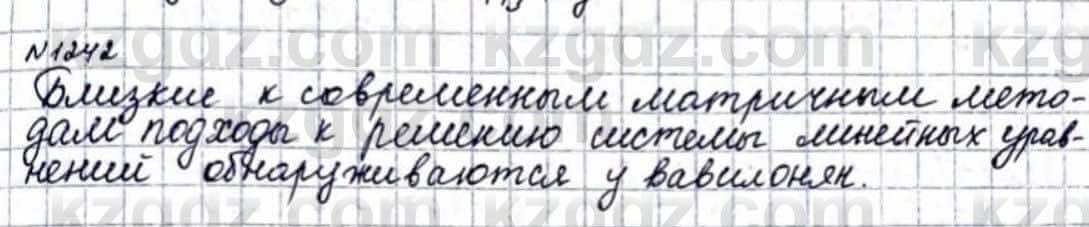 №1242
Близкие к современным матричным мето-
дам подходы к решению системы линейных урав-
нений обнаруживаются у вавилонян.